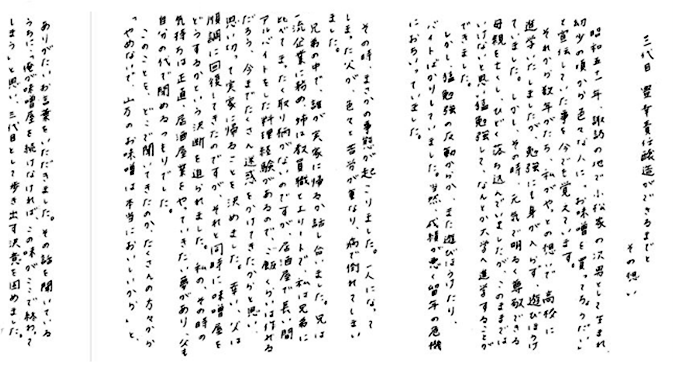 三代目 豊幸責任醸造ができるまでと
その想い
昭和五十一年、諏訪の地で小松家の次男として生まれ
幼少の頃から色々な人に、お味噌を買ってちょうだい
て宣伝していた事を今でも覚えています。
それから数年がたち、私がやっとの想いで、高校に
進学したしましたが、勉強にも身が入らず、遊びほうけ
ていました。しかし、その時、元気で明るく尊敬できる
母親を亡くし、ひどく落ち込んでいましたが、このままでは
いけないと思い猛勉強して、なんとか大学へ進学することが
できました。
しかし、猛勉強の反動からか、また遊びほうけたり、
バイトばかりしていました。当然、成績が悪く留年の危機
におちいっていました。
その時、まさかの事態が起こりました。一人になって
しまった父が、色々と苦労が重なり、病で倒れてしまい
ました。
兄弟の中で、誰が実家に帰るか話し合いました。兄は
一流企業に務め、姉は教員職とエリートで、私は兄弟に
比べてまったく取り柄がないのですが、居酒屋で長い間
アルバイトをした料理経験があるので、ご飯くらいは作れる
だろう、今までたくさん迷惑をかけてきたのだからと思い、
思い切って実家に帰ることを決めました。幸い、父は
順調に回復してきたのですが、それと同時に味噌屋を
どうするかという決断を迫られました。私の、その時の
気持ちは正直、居酒屋業をやっていきたい夢があり、父も
自分の代で閉めるつもりでした。
このことを、どこで聞いてきたのか、たくさんの方々から
「やめないで、山万のお味噌は本当においしいから」と、
ありがたいお言葉をいただきました。その話を聞いている
うちに、「俺が味噌屋を続けなければ、この味がここで終わって
しまう」と思い、三代目として歩き出す決意を固めました。